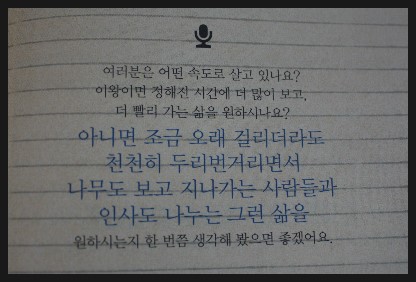 여러분은 어떤 속도로 살고 있나요?
이왕이면 정해진 시간에 더 많이 보고,
더 빨리 가는 삶을 원하시나요?
아니면 조금 오래 걸리더라도
천천히 두리번거리면서
나무도 보고 지나가는 사람들과
인사도 나누는 그런 삶을
원하시는지 한 번쯤 생각해 봤으면 좋겠어요.